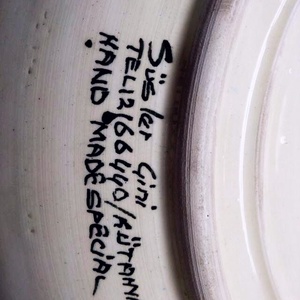 Süsler Çini
TEL:12166440/KÜTAHYA
HAND MADE SPECIAL